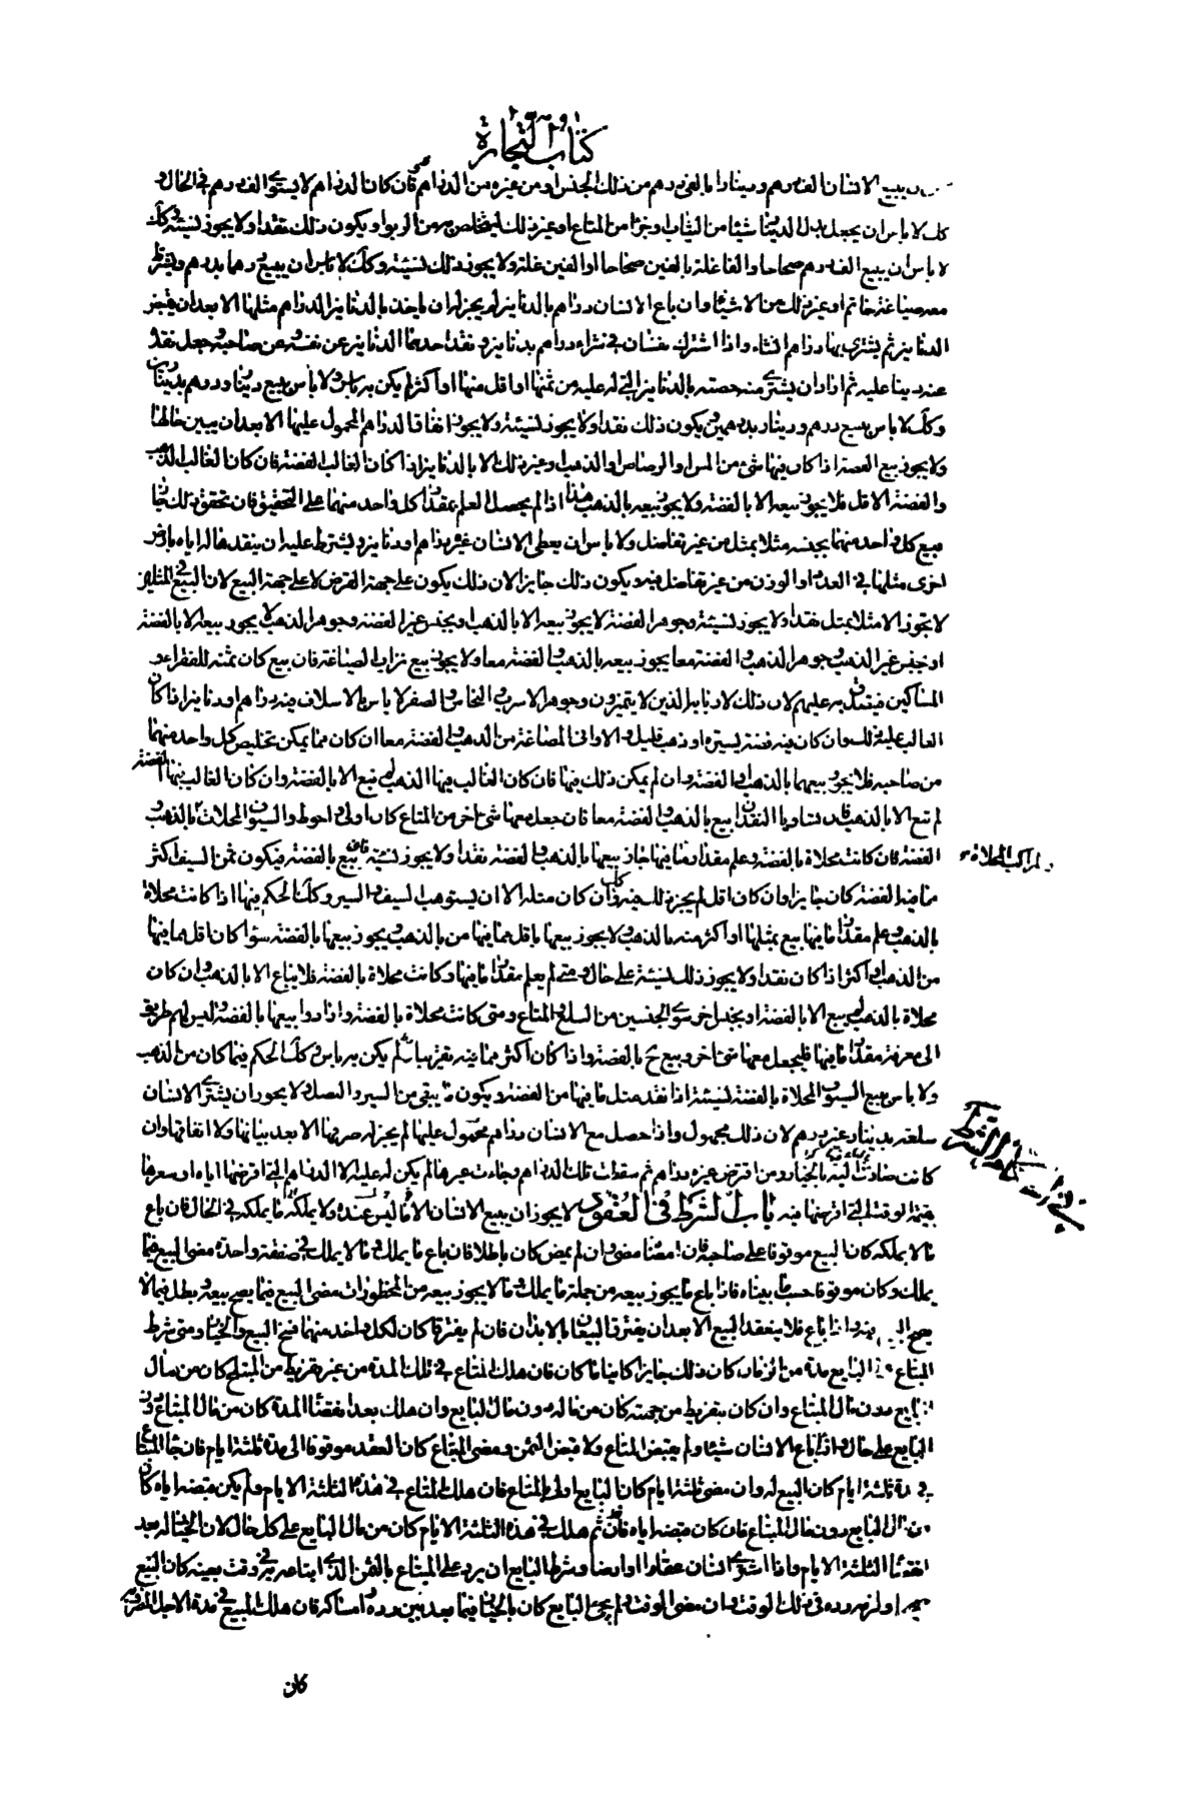 كتاب التجارة
يبيع الانسان الف درهم ودينارا بالفى درهم من ذلك الجنس او من غيره من الدراهم فان كان الدراهم لا يستوى الف درهم فى الحال و
كك لا باس ان يجعل بدل الدينار شيئا من الثياب وجزءا من المتاع او غير ذلك ليتخلص به من الربوا ويكون ذلك نقدا ولا يجوز نسيئة وكك
لا باس ان يبيع الف درهم صحاحا والفا غلة بالفين صحاحا او الفين غلة ولا يجوز ذلك نسيئة وكك لا باس ان يبيع درهما بدرهم ويشترط
معه صياغة خاتم او غير ذلك من الاشياء وان باع الانسان دراهم بالدنانير لم يجز له ان ياخذ بالدنانير الدراهم مثلها الا بعد ان يقبض
الدنانير ثم يشترى بها دراهم ان شاء واذا اشترك نفسان فى شراء دراهم بدنانير ونقد احدهما الدنانير عن نفسه وعن صاحبه وجعل نقده
عنه دينا عليه ثم اراد ان يشترى منه حصته بالدنانير التى له عليه من ثمنها او اقل منها او اكثر لم يكن به باس ولا باس ببيع دينار ودرهم بدينارين
وكك لا باس ببيع درهم ودينار بدرهمين ويكون ذلك نقدا ولا يجوز نسيئة ولا يجوز انفاق الدراهم المحمول عليها الا بعد ان يبين حالها
ولا يجوز بيع الفضة اذا كان فيها شئ من المس او الرصاص او الذهب او غير ذلك الا بالدنانير اذا كان الغالب الفضة فان كان الغالب الذهب
والفضة الاقل فلا يجوز بيعه الا بالفضة ولا يجوز بيعه بالذهب هذا اذا لم يحصل العلم بمقدار كل واحد منهما على التحقيق فان تحقق ذلك جاز
بيع كل واحد منهما بجنسه مثلا بمثل من غير تفاضل ولا باس ان يعطى الانسان غيره دراهم او دنانير ويشترط عليه ان ينقدها اياه بارض
اخرى مثلها فى العدد او الوزن من غير تفاضل فيه ويكون ذلك جايزا لان ذلك يكون على جهة القرض لا على جهة البيع لان البيع فى المثلين
لا يجوز الا مثلا بمثل نقدا ولا يجوز نسيئة وجوهر الفضة لا يجوز بيعه الا بالذهب او بجنس غير الفضة وجوهر الذهب لا يجوز بيعه الا بالفضة
او بجنس غير الذهب وجوهر الذهب والفضة معا يجوز بيعه بالذهب والفضة معا ولا يجوز بيع تراب الصياغة فان بيع كان ثمنه للفقراء و
المساكين فيتصدق به عليهم لان ذلك لارباب الذين لا يتميزون وجوهر الاسرب والنحاس والصفر لا باس بالاسلاف فيه دراهم او دنانير اذا كان
الغالب عليه ذلك وان كان فيه فضة يسيرة او ذهب قليل والاوانى المصاغة من الذهب والفضة معا ان كان مما يمكن تخليص كل واحد منهما
من صاحبه فلا يجوز بيعهما بالذهب او الفضة وان لم يمكن ذلك فيها فان كان الغالب فيها الذهب لم تبع الا بالفضة وان كان الغالب فيها الفضة
لم تبع الا بالذهب فان تساويا النقدان بيع بالذهب والفضة معا فان جعل معها شئ اخر من المتاع كان اولى واحوط والسيوف المحلات بالذهب و
المراكب المحلاة
الفضة فان كانت محلاة بالفضة وعلم مقدار ما فيها جاز بيعها بالذهب والفضة نقدا ولا يجوز نسيئة فان بيع بالفضة فيكون ثمن السيف اكثر
مما فيه الفضة كان جايزا وان كان اقل لم يجز ذلك فيه وكك ان كان مثله الا ان يستوهب السيف والسير وكك الحكم فيها اذا كانت محلاة
بالذهب وعلم مقدار ما فيها بيع بمثلها او اكثر منه بالذهب ولا يجوز بيعها باقل مما فيها من بالذهب ويجوز بيعها بالفضة سواء كان اقل مما فيها
من الذهب او اكثر اذا كان نقدا ولا يجوز ذلك نسيئة على حال ومتى لم يعلم مقدار ما فيها وكانت محلاة بالفضة فلا يباع الا بالذهب وان كان
محلاة بالذهب لم يبع الا بالفضة او بجنس اخر سوى الجنسين من السلع والمتاع ومتى كانت محلاة بالفضة وارادوا بيعها بالفضة وليس لهم طريق
الى معرفة مقدار ما فيها فليجعل معها شئ اخر وبيع ح بالفضة واذا كان اكثر مما فيه تقريبا لم يكن به باس وكك الحكم فيما كان من الذهب
ولا باس ببيع السيوف المحلاة بالفضة نسيئة اذا نقد مثل ما فيها من الفضة ويكون ما يبقى من السير والنصل ولا يجوز ان يشترى الانسان
سلعة بدينار غير درهم لان ذلك مجهول واذا حصل مع الانسان دراهم محمول عليها لم يجز له صرفها الا بعد بيانها ولا انفاقها وان
كانت صارت اليه بالجياد ومن اقرض غيره دراهم ثم سقطت تلك الدراهم وجاءت غيرها لم يكن له عليه الا الدراهم التى اقرضها اياه او سعرها
بقيمة الوقت الذى اقرضها فيه باب الشرط فى العقود لا يجوز ان يبيع الانسان الا ما ليس عنده ولا يملكه ما يملكه فى الحال فان باع
ما لا يملكه كان البيع موقوفا على صاحبه فان امضاه مضى وان لم يمض كان باطلا فان باع ما يملك وما لا يملك فى صفقة واحدة مضى البيع فيما
يملك وكان موقوفا حسب ما بيناه فاذا باع ما يجوز بيعه من جملة ما يملك وما لا يجوز بيعه من المحظورات مضى البيع فيما يصح بيعه وبطل فيما لا
يصح البيع فيه واذا باع فلا ينعقد البيع الا بعد ان يفترق البيعان بالابدان فان لم يفترقا كان لكل واحد منهما فسخ البيع والخيار ومتى شرط
المبتاع على البايع مدة من الزمان كان ذلك جايزا كاينا ما كان فان هلك المتاع فى تلك المدة من غير تفريط من المبتاع كان من مال
البايع دون مال المبتاع وان كان بتفريط من جهته كان من ماله دون مال البايع وان هلك بعد انقضاء المدة كان من مال المبتاع دون
البايع على حال واذا باع الانسان شيئا ولم يقبض المتاع ولا قبض الثمن ومضى المبتاع كان العقد موقوفا الى مدة ثلثة ايام فان جاء المبتاع
فى مدة ثلثة ايام كان البيع له وان مضى ثلثة ايام كان البايع اولى بالمتاع فان هلك المتاع فى هذه الثلثة الايام ولم يكن قبضه اياه كان
من مال البايع دون مال المبتاع فان كان قبضه اياه ثم هلك فى هذه الثلثة الايام كان من مال البايع على كل حال لان الخيار له بعد
انقضاء الثلثة الايام واذا اشترى انسان عقارا او ارضا وشرط البايع ان يرد على المبتاع بالثمن الذى ابتاعه به فى وقت بعينه كان البيع
صحيحا ولزمه رده فى ذلك الوقت وان مضى الوقت ولم يجئ البايع كان بالخيار فيما بعد بين رده وامساكه فان هلك المبيع فى مدة الاجل المضروب
كان